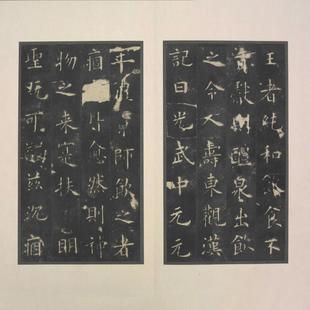 王者純和飲食不
貢獻則醴泉出飲
之令人壽東觀漢
記曰光武中元元
年師飲之者
痼皆愈然則神
物之来寔扶明
聖既可蠲兹沉痼